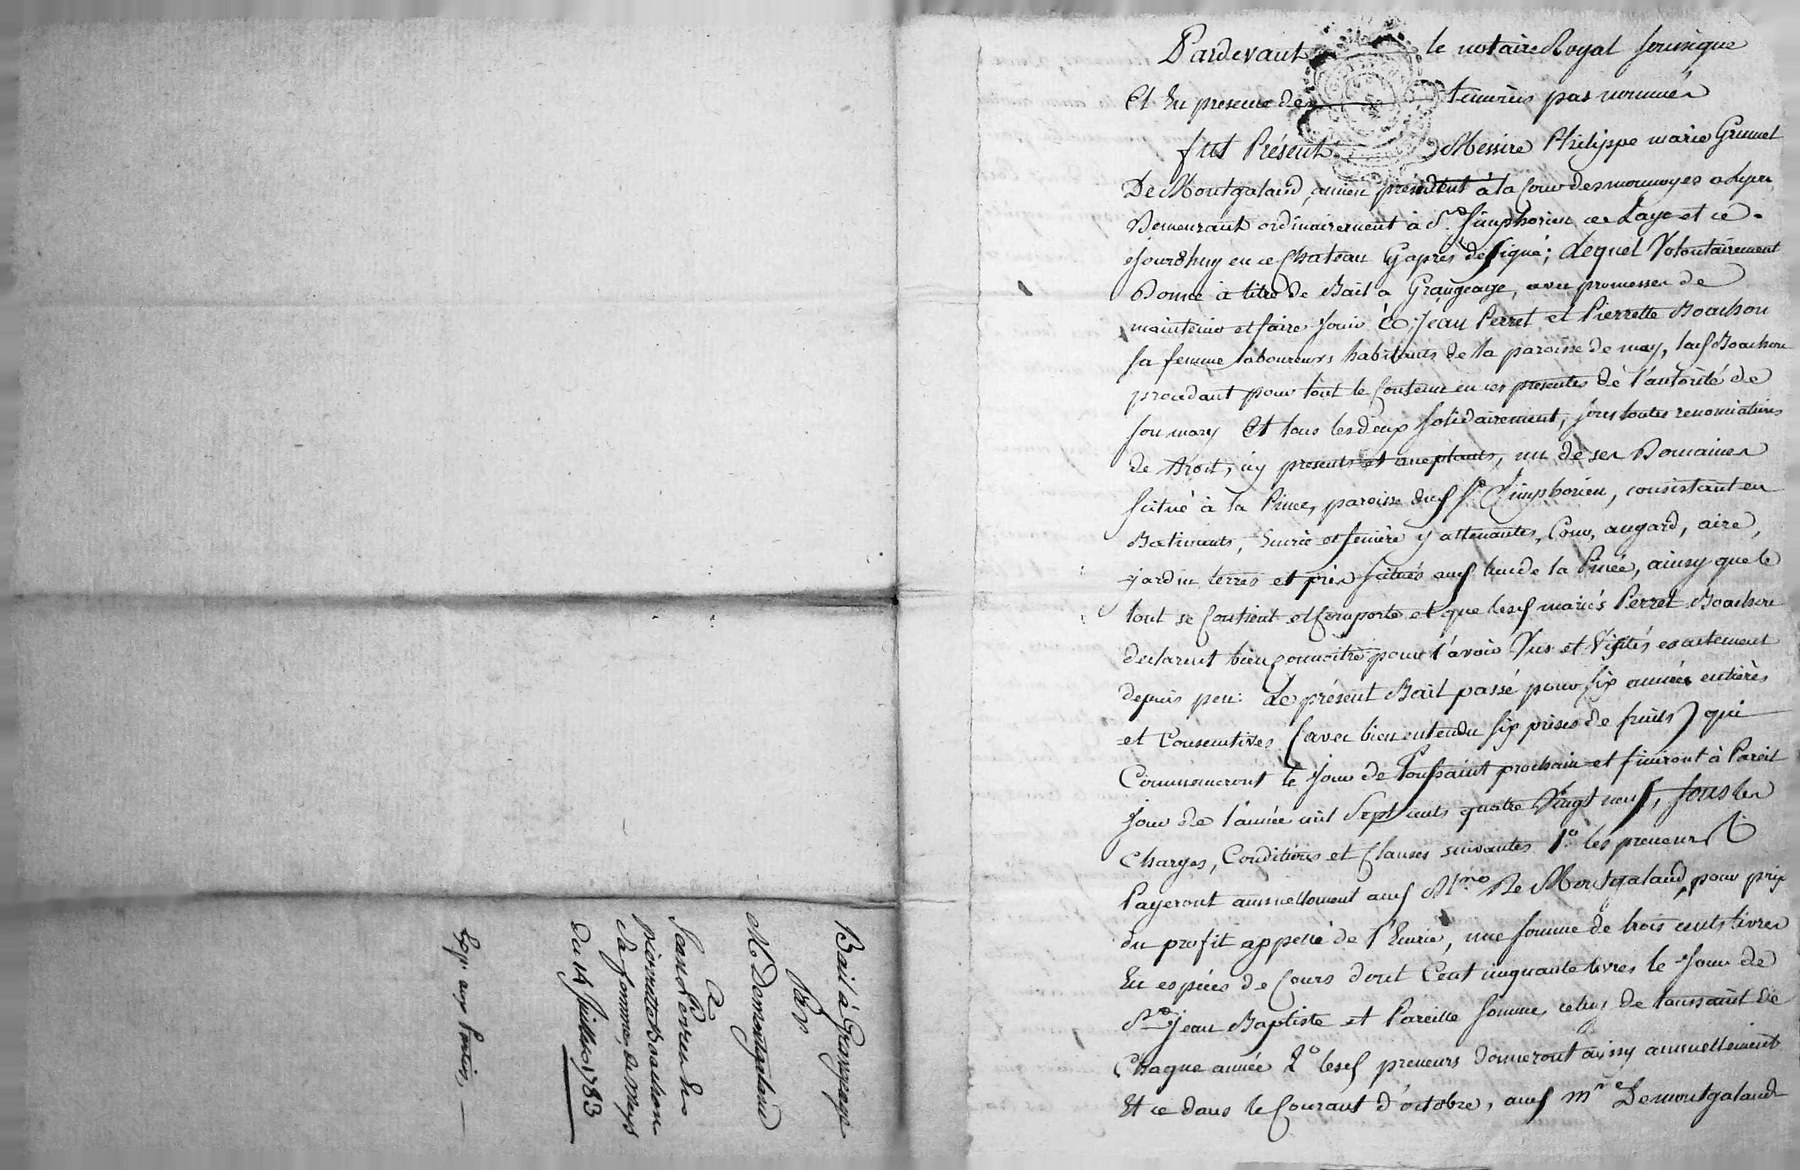 Bail à Grangeage
Par
Mr Demontgaland
à
Jean Perret &
pierrette Boachon
sa femme, de Meys
du 14 Juillet 1783
Exp. aux Parties
Pardevant le notaire Royal soussigné
Et En presence des temoins pas nommés
fut Présent Messire Philippe marie Grimet
De Montgaland, ancien président à la Cour des monnoyes a Lyon
Demeurant ordinairement à St. Simphorien ce Laye et ce
jourdhuy en ce Chateau Cy après désigné; Lequel Volontairement
Donne à titre de Bail a Grangeage, avec promesses de
maintenir et faire Jouir à Jean Perret et Pierrette Boachon
sa femme laboureurs habitants de la paroisse de mey, lad Boachon
procedant pour tout le Contenu en ces presentes de l'autorité de
son mary Et tous les deux solidairement, sous toutes renonciations
de droit, icy presents et acceptants, un de ses Domaines
situé à la Pinée, paroisse dud St. Simphorien, consistant en
Batiments, Ecurie et feniere y attenantes, Cour, angard, aire,
jardin terres et prés situés aud lieu de la Pinée, ainsy que le
tout se Contient et Comporte et que lesd mariés Perret Boachon
declarent bien Connoitre pour l'avoir Vus et Visités exactement
depuis peu: Le présent Bail passé pour six années entières
et Consecutives (avec bien entendu six prises de fruits) qui
Commenceront le Jour de Toussaint prochain et finiront à Pareil
Jour de l'année mil Sept cents quatre Vingt neuf, sous les
Charges, Conditions et Clauses suivantes 1° les preneurs
Payeront annuellement aud De Montgaland, pour prix
du profit appellé de l'Ecurie, une somme de trois cents livres
En espèces de Cours dont Cent cinquante livres le Jour de
St Jean Baptiste et Pareille somme celuy de toussaint de
Chaque année 2° lesd preneurs donneront aussy annuellement
Et ce dans le Courant d'octobre, aud mr Demontgaland